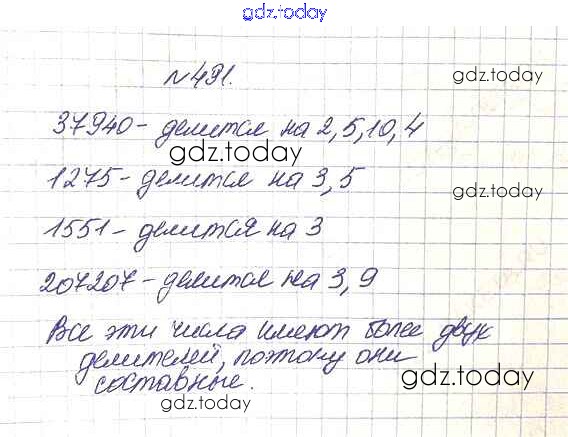 gdz.today
№491.
gdz.today
37940- делится на 2,5,10,4
gdz.today
1275- делится на 3,5
gdz.today
1551- делится на 3
207207- делится на 3,9
Все эти числа имеют более двух
делителей, поэтому они
составные.
gdz.today
gdz.today